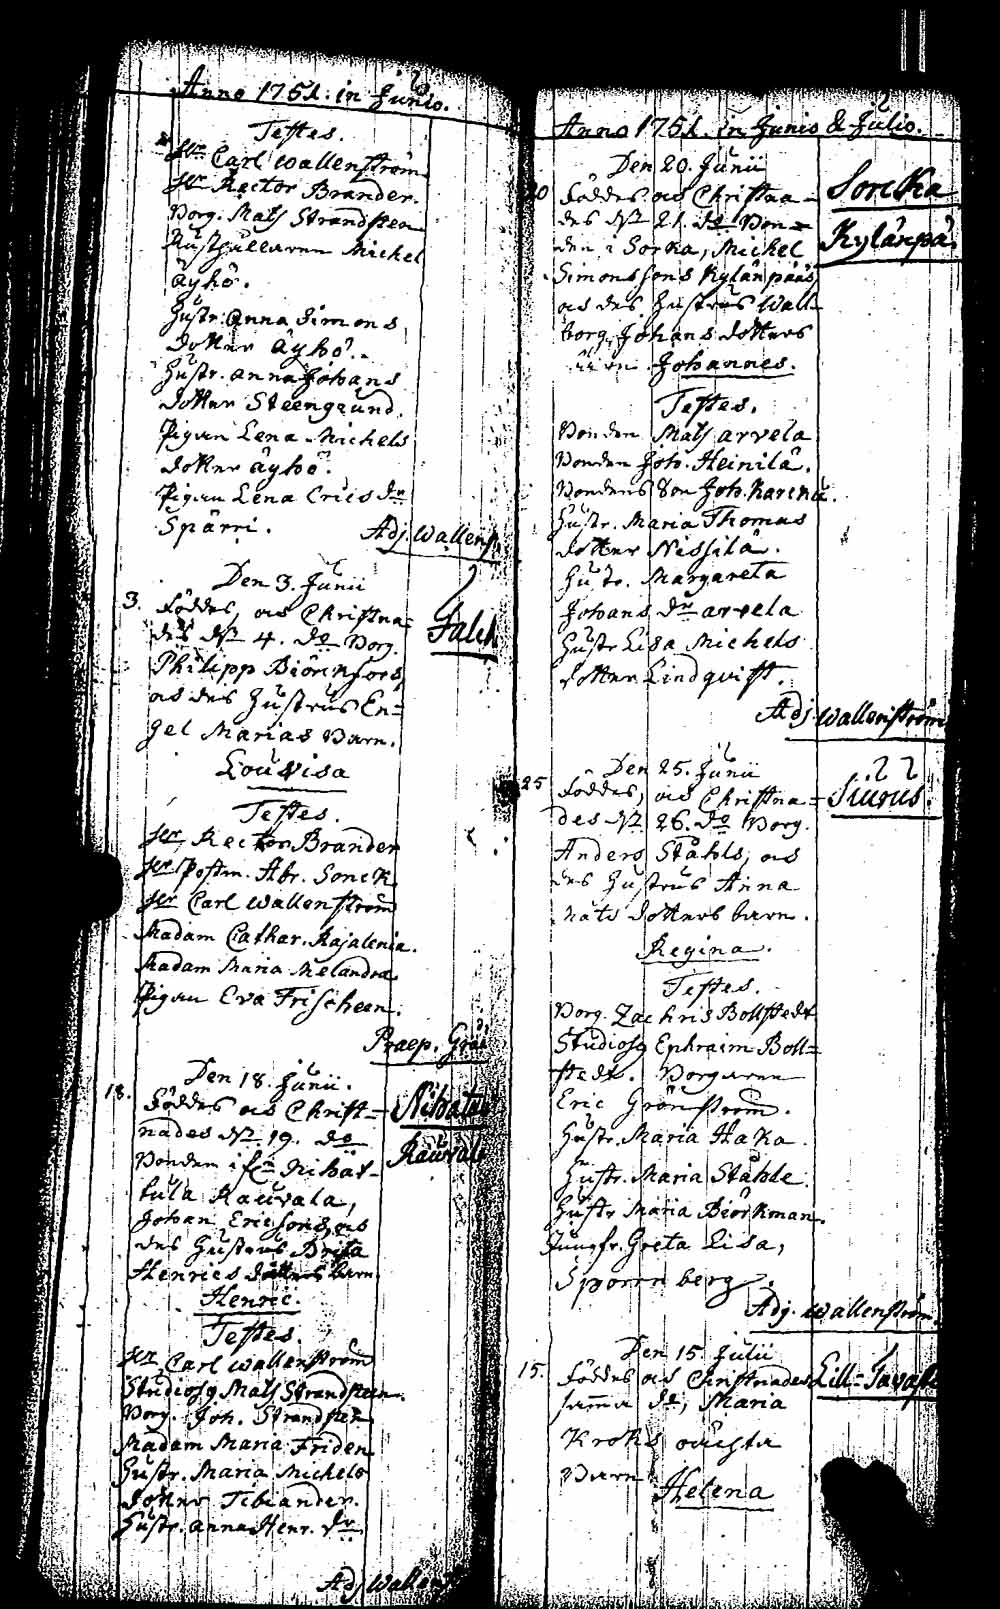 Anno 1751. in Junio.
Testes.
Hr Carl Wallenström
Hr Rector Brander.
Borg. Mats Strandsten
Rusthållaren Michel
äyhö.
Hustr. Anna Simons
dotter äyhö.
Hustr. Anna Johans
dotter Steengrund.
Pigan Lena Michels
dotter äyhö.
Pigan Lena Erics dr
Spärri.
Adj. Wallens
Den 3. Junii
3. Föddes, och Christna=
des dn 4. do Borg.
Philipp Biörnfors,
och des Hustrus En=
gel Marias Barn.
Louvisa
Falck
Testes.
Hr Rector Brander
Hr Postm. Abr. Sonck
Hr Carl Wallenström
Madam Cathar. Kajalenia.
Madam Maria Melandra
Pigan Eva Frischeen.
Praep. Grå
Den 18. Junii.
18. Föddes och Christ=
nades dn 19. do
Bonden i
tula Rauvala,
Johan Ericsons, och
des Hustrus Brita
Henrics dotters barn.
Henric.
Rauvala
Testes.
Hr Carl Wallenström
Studiosq Mats Strandsten
Borg. Joh. Strandsten
Madam Maria Friden
Hustr. Maria Michels
dotter Tibiander.
Hustr. Anna Henr. dr
Adj. Wallen
Anno 1751. in Junio & Julio.
Den 20. Junii
20 Föddes och Christna=
des dn 21. do Bon=
den i Sorka, Michel
Simonssons Kylänpääs
och des Hustrus Wall
borg Johans dotters
barn Johannes.
Sorcka
Kylänpä
Testes.
Bonden Mats arvela
Bonden Joh. Heinilä.
Bondens Son Joh. Karenu.
Hustr. Maria Thomas
dotter Nissilä.
Hustr. Margareta
Johans dr arvela
Hustr Lisa Michels
dotter Lindqvist.
Adj Wallenström
Den 25. Junii
25 Föddes, och Christna=
des dn 26. do Borg.
Anders Ståhls, och
des Hustrus Anna
Mats dotters barn.
Regina.
Testes.
Borg. Zachris Bollstedt
Studiosq Ephraim Boll=
stedt. Borgaren
Eric Grönström.
Hustr. Maria Haka
Hustr. Maria Ståhle
Hustr Maria Biörkman.
Jungfr. Greta Lisa,
Sporrnberg.
Adj. Wallenström.
Den 15. Julii
15. Föddes och Christnades
samma do, Maria
Kroks oächta
Barn
Helena
Lill=Savast